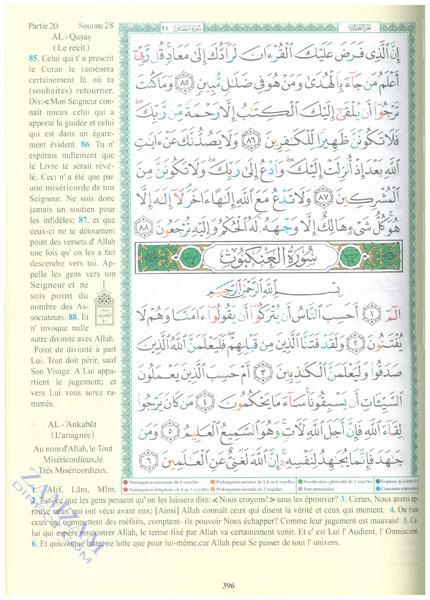 Partie 20 Sourate 28
AL - Qaṣaṣ
(Le récit)
85. Celui qui t' a prescrit
le Coran te ramènera
certainement là où tu
(souhaites) retourner.
Dis:«Mon Seigneur con-
naît mieux celui qui a
apporté la guidée et celui
qui est dans un égare-
ment évident. 86. Tu n'
espérais nullement que
le Livre te serait révé-
lé. Ceci n' a été que par
une miséricorde de ton
Seigneur. Ne sois donc
jamais un soutien pour
les infidèles; 87. et que
ceux-ci ne te détournent
point des versets d' Allah
une fois qu' on les a fait
descendre vers toi. Ap-
pelle les gens vers ton
Seigneur et ne
sois point du
nombre des As-
sociateurs. 88. Et
n' invoque nulle
autre divinité avec Allah.
Point de divinité à part
Lui. Tout doit périr, sauf
Son Visage. A Lui appa-
rtient le jugement; et
vers Lui vous serez ra-
menés.
AL -'Ankabūt
(L'araignée)
Au nom d'Allah, le Tout
Miséricordieux,le
Très Miséricordieux.
إِنَّ ٱلَّذِى فَرَضَ عَلَيْكَ ٱلْقُرْءَانَ لَرَآدُّكَ إِلَىٰ مَعَادٍ قُل رَّبِّىٓ
أَعْلَمُ مَن جَآءَ بِٱلْهُدَىٰ وَمَنْ هُوَ فِى ضَلَـٰلٍ مُّبِينٍ ٨٥ وَمَا كُنتَ
تَرْجُوٓا۟ أَن يُلْقَىٰٓ إِلَيْكَ ٱلْكِتَـٰبُ إِلَّا رَحْمَةً مِّن رَّبِّكَ
فَلَا تَكُونَنَّ ظَهِيرًا لِّلْكَـٰفِرِينَ ٨٦ وَلَا يَصُدُّنَّكَ عَنْ ءَايَـٰتِ
ٱللَّهِ بَعْدَ إِذْ أُنزِلَتْ إِلَيْكَ وَٱدْعُ إِلَىٰ رَبِّكَ وَلَا تَكُونَنَّ مِنَ
ٱلْمُشْرِكِينَ ٨٧ وَلَا تَدْعُ مَعَ ٱللَّهِ إِلَـٰهًا ءَاخَرَ لَآ إِلَـٰهَ إِلَّا
هُوَ كُلُّ شَىْءٍ هَالِكٌ إِلَّا وَجْهَهُۥ لَهُ ٱلْحُكْمُ وَإِلَيْهِ تُرْجَعُونَ ٨٨
سُورَةُ العَنكَبُوتِ
بِسْمِ ٱللَّهِ ٱلرَّحْمَـٰنِ ٱلرَّحِيمِ
الٓمٓ ١ أَحَسِبَ ٱلنَّاسُ أَن يُتْرَكُوٓا۟ أَن يَقُولُوٓا۟ ءَامَنَّا وَهُمْ لَا
يُفْتَنُونَ ٢ وَلَقَدْ فَتَنَّا ٱلَّذِينَ مِن قَبْلِهِمْ فَلَيَعْلَمَنَّ ٱللَّهُ ٱلَّذِينَ
صَدَقُوا۟ وَلَيَعْلَمَنَّ ٱلْكَـٰذِبِينَ ٣ أَمْ حَسِبَ ٱلَّذِينَ يَعْمَلُونَ
ٱلسَّيِّـَٔاتِ أَن يَسْبِقُونَا سَآءَ مَا يَحْكُمُونَ ٤ مَن كَانَ يَرْجُوا۟
لِقَآءَ ٱللَّهِ فَإِنَّ أَجَلَ ٱللَّهِ لَـَٔاتٍ وَهُوَ ٱلسَّمِيعُ ٱلْعَلِيمُ ٥ وَمَن
جَـٰهَدَ فَإِنَّمَا يُجَـٰهِدُ لِنَفْسِهِۦٓ إِنَّ ٱللَّهَ لَغَنِىٌّ عَنِ ٱلْعَـٰلَمِينَ ٦
1. Alif, Lām, Mīm.
2. Est-ce que les gens pensent qu' on les laissera dire: «Nous croyons!» sans les éprouver? 3. Certes, Nous avons ép
rouvé ceux qui ont vécu avant eux; [Ainsi] Allah connaît ceux qui disent la vérité et ceux qui mentent. 4. Ou bien
ceux qui commettent des méfaits, comptent- ils pouvoir Nous échapper? Comme leur jugement est mauvais! 5. Ce-
lui qui espère rencontrer Allah, le terme fixé par Allah va certainement venir. Et c' est Lui l' Audient, l' Omniscient.
6. Et quiconque lutte, ne lutte que pour lui-même,car Allah peut Se passer de tout l' univers.
396
ZAWZAM